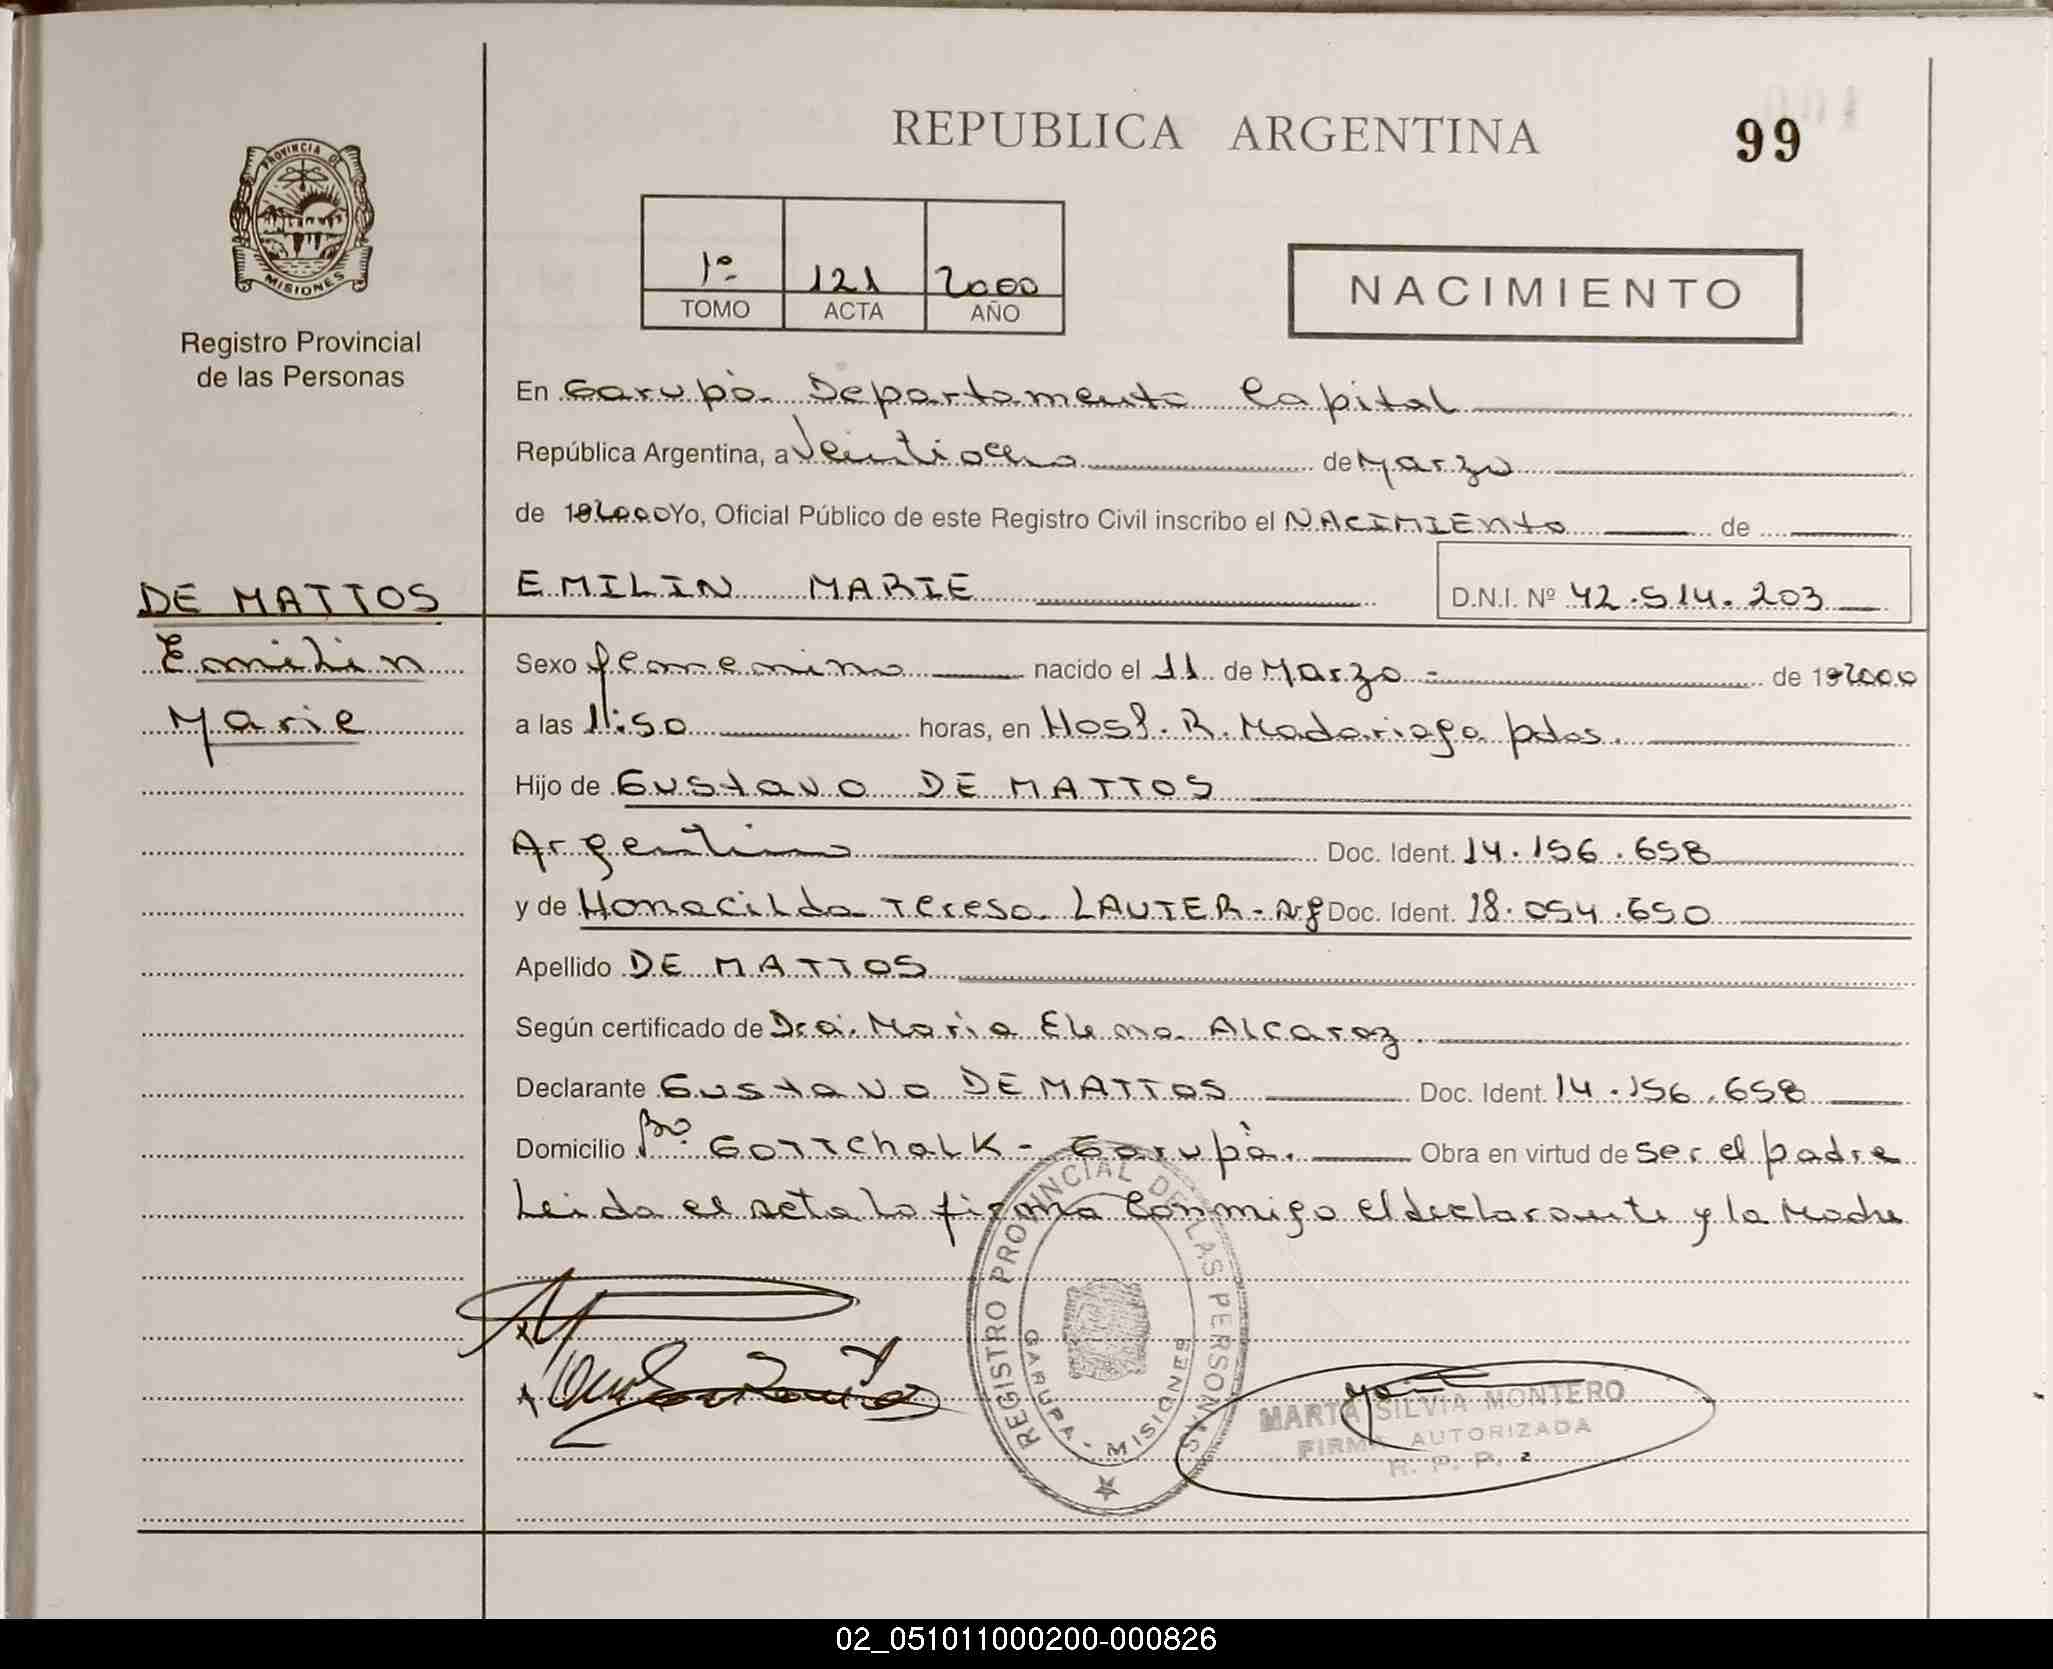 REPUBLICA ARGENTINA
99
PROVINCIA DE
MISIONES
Registro Provincial
de las Personas
1º 121 2000
TOMO ACTA AÑO
NACIMIENTO
En Garupà Departamento Capital
República Argentina, a Veintiocho de Marzo
de 192000 Yo, Oficial Público de este Registro Civil inscribo el NACIMIENto de
DE MATTOS
EMILIN MARIE
D.N.I. Nº 42.514.203
Emilin
Marie
Sexo femenino nacido el 11 de Marzo - de 192000
a las 11:50 horas, en Hosp. R. Madariaga pdas.
Hijo de Gustavo DE MATTOS
Argentino Doc. Ident. 14.156.658
y de Honacilda Teresa LAUTER - Arg Doc. Ident. 18.054.650
Apellido DE MATTOS
Según certificado de Dra. Maria Elena Alcaraz.
Declarante Gustavo DE MATTOS Doc. Ident. 14.156.658
Domicilio Bº. GOTTChaLK - Garupà. Obra en virtud de ser el padre
Leida el acta lo firma conmigo el declarante y la Madre
REGISTRO PROVINCIAL DE LAS PERSONAS
GARUPA - MISIONES
MARTA SILVIA MONTERO
FIRMA AUTORIZADA
R. P. P.
02_051011000200-000826